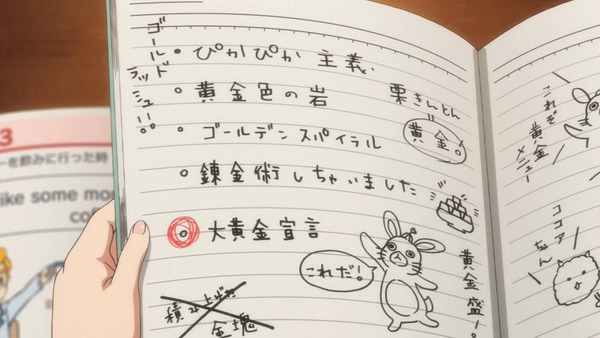 ゴールドラッシュ!!
。ぴかぴか 主義、
。黄金色の岩
栗きんとん
=
黄金。
。ゴールデンスパイラル
。錬金術しちゃいました
。大黄金宣言
これだ!
黄金盛り。
積み上げた
金塊
これぞ黄金
メニュー
ココア
ちゃん
3
ーを飲みに行った時
like some mo
cof